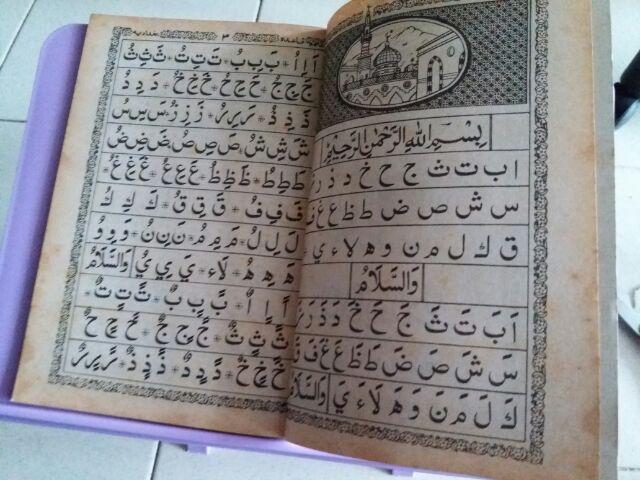 بِسْمِ اللهِ الرَّحْمٰنِ الرَّحِيْمِ
ا ب ت ث ج ح خ د ذ ر
س ش ص ض ط ظ ع غ
ق ك ل م ن و ه لا ء ي
وَالسَّلَامُ
اَ بَ تَ ثَ جَ حَ خَ دَ ذَ رَ
سَ شَ صَ ضَ طَ ظَ عَ غَ فَ قَ
كَ لَ مَ نَ وَ هَ لَا ءَ يَ وَالسَّلَامُ
٣
اَ اِ اُ * بَ بِ بُ * تَ تِ تُ * ثَ ثِ ثُ
جَ جِ جُ * حَ حِ حُ * خَ خِ خُ * دَ دِ دُ
ذَ ذِ ذُ * رَ رِ رُ * زَ زِ زُ * سَ سِ سُ
شَ شِ شُ * صَ صِ صُ * ضَ ضِ ضُ
طَ طِ طُ * ظَ ظِ ظُ * عَ عِ عُ * غَ غِ غُ
فَ فِ فُ * قَ قِ قُ * كَ كِ كُ
لَ لِ لُ * مَ مِ مُ * نَ نِ نُ * وَ وِ وُ
هَ هِ هُ * لَا ءِ * يَ يِ يُ وَالسَّلَامُ
اً اٍ اٌ * بً بٍ بٌ * تً تٍ تٌ
ثً ثٍ ثٌ * جً جٍ جٌ * حً حٍ حٌ
خً خٍ خٌ * دً دٍ دٌ * ذً ذٍ ذٌ * رً رٍ رٌ